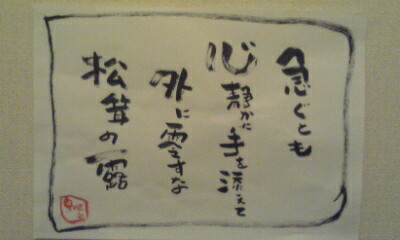 急ぐとも
心静かに手を添えて
外に零すな
松茸の露